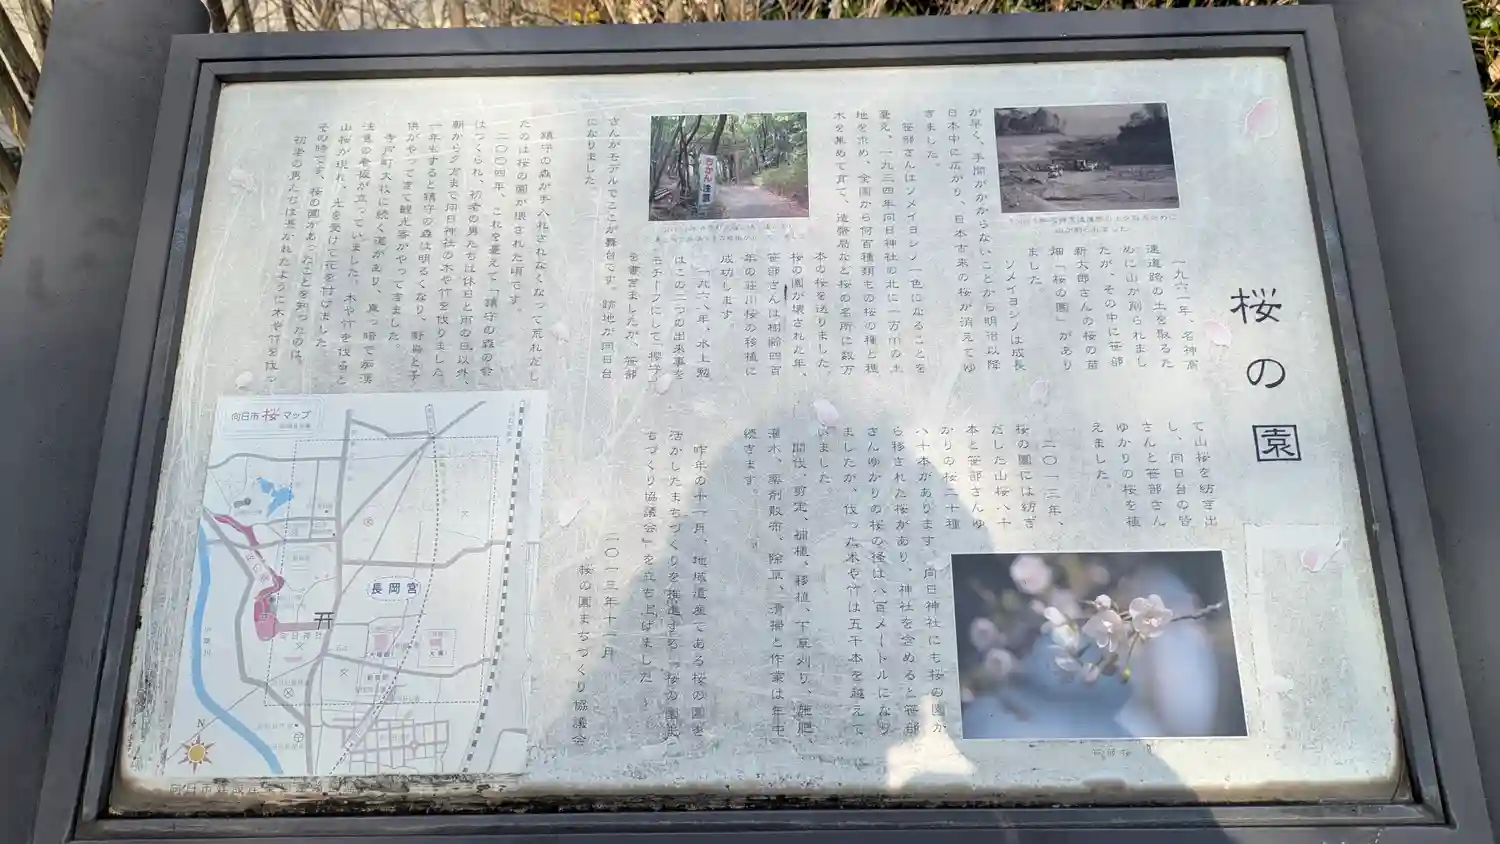 桜の園
一九六一年、名神高
速道路の土を取るた
めに山が削られまし
たが、その中に笹部
新太郎さんの桜の苗
畑「桜の園」があり
ました。
ソメイヨシノは成長
が早く、手間がかからないことから明治以降
日本中に広がり、日本古来の桜が消えてゆ
きました。
笹部さんはソメイヨシノ一色になることを
憂え、一九三四年向日神社の北に一万㎡の土
地を求め、全国から何百種類もの桜の種と穂
木を集めて育て、造幣局など桜の名所に数万
本の桜を送りました。
桜の園が壊された年、
笹部さんは樹齢四百
年の荘川桜の移植に
成功します。
一九六八年、水上勉
はこの二つの出来事を
モチーフにして「櫻守」
を書きましたが、笹部
さんがモデルでここが舞台です。跡地が向日台
になりました。
鎮守の森が手入れされなくなって荒れだし
たのは桜の園が壊された頃です。
二〇〇四年、これを憂えて「鎮守の森の会」
はつくられ、初老の男たちは休日と雨の日以外、
朝から夕方まで向日神社の木や竹を伐りました。
一年もすると鎮守の森は明るくなり、野鳥と子
供がやってきて観光客がやってきました。
寺戸町大牧に続く道があり、真っ暗で痴漢
注意の看板が立っていました。木や竹を伐ると
山桜が現れ、光を受けて花を付けました。
その時です、桜の園があったことを知ったのは。
初老の男たちは憑かれたように木や竹を伐っ
て山桜を紡ぎ出
し、向日台の皆
さんと笹部さん
ゆかりの桜を植
えました。
二〇一三年、
桜の園には紡ぎ
だした山桜八十
本と笹部さんゆ
かりの桜二十種
八十本があります。向日神社にも桜の園か
ら移された桜があり、神社を含めると笹部
さんゆかりの桜の径は八百メートルになり
ましたが、伐った木や竹は五千本を越えて
いました。
間伐、剪定、補植、移植、下草刈り、施肥、
灌水、薬剤散布、除草、清掃と作業は年中
続きます。
昨年の十一月、地域遺産である桜の園を
活かしたまちづくりを推進する「桜の園ま
ちづくり協議会」を立ち上げました。
二〇一三年十一月
桜の園まちづくり協議会
ちかん注意
向日市 桜マップ
長岡宮
向日神社
N